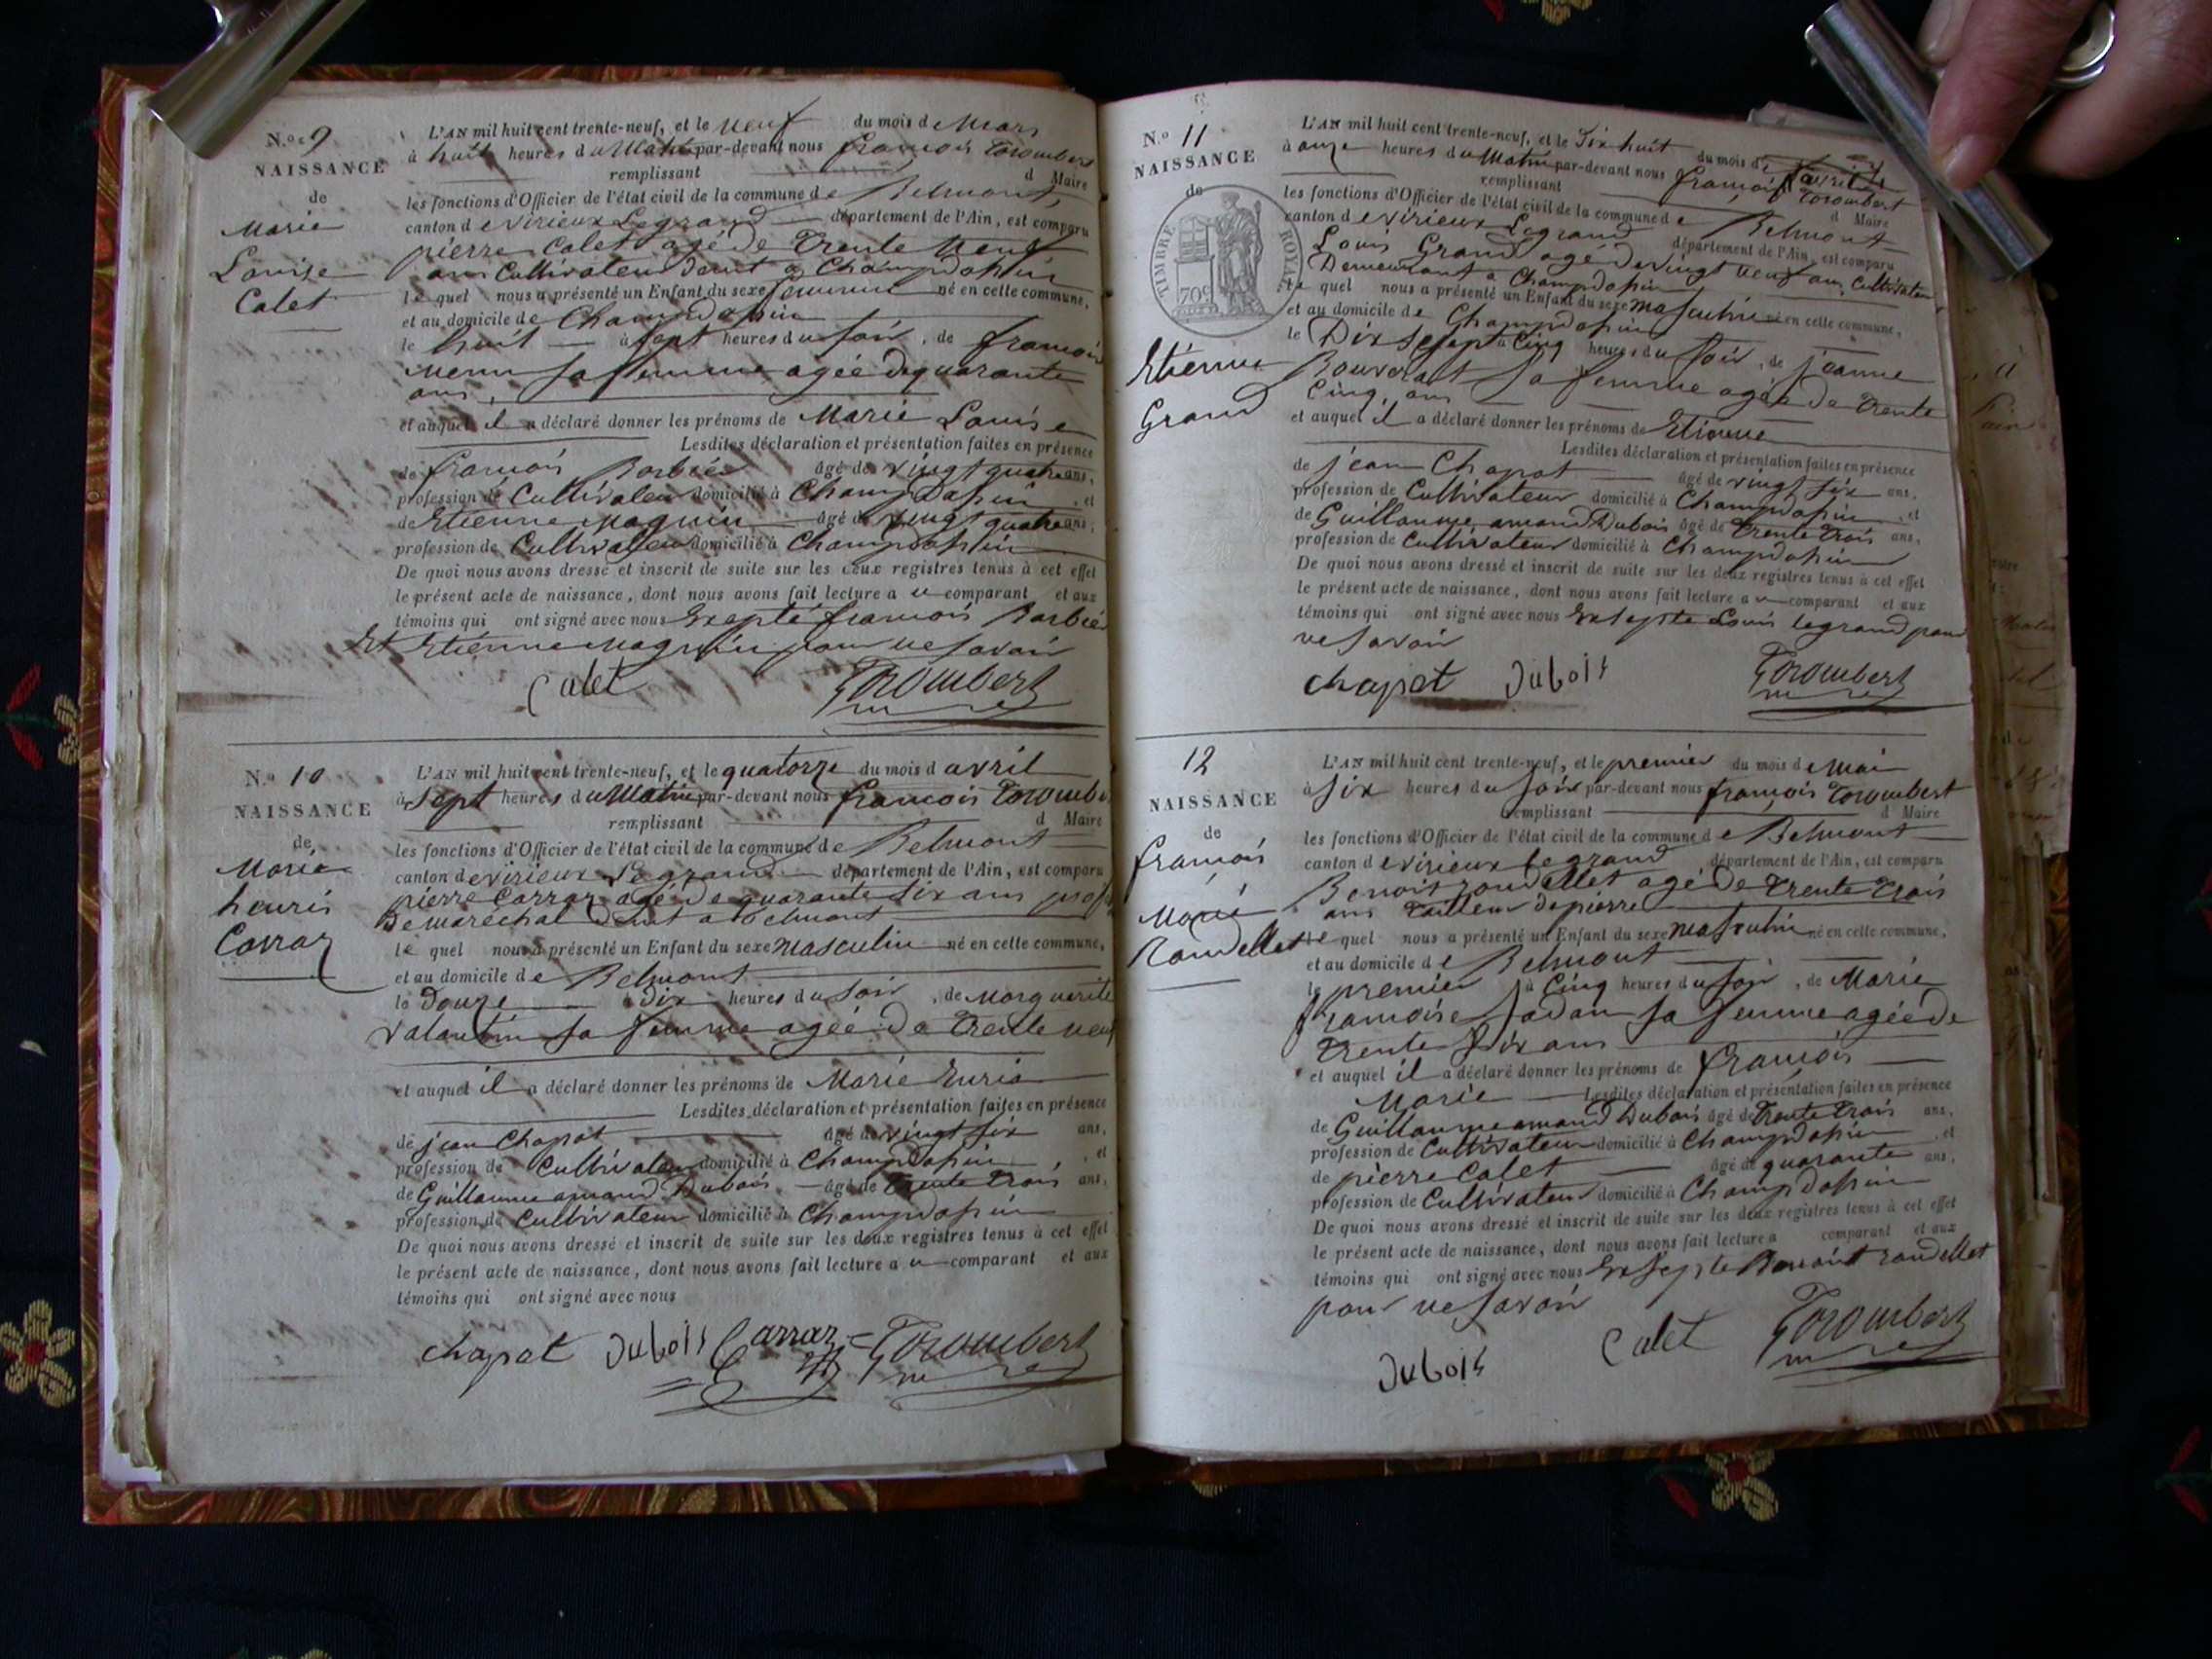 N.º 9
NAISSANCE
de
Marie
Louise
Calet
L'AN mil huit cent trente-neuf, et le neuf du mois de Mars
à huit heures du Matin par-devant nous françois Trombert
remplissant d Maire
les fonctions d'Officier de l'état civil de la commune de Belmont
canton de virieux Legrand département de l'Ain, est comparu
pierre Calet agé de trente neuf
ans Cultivateur demt a Champdossin
le quel nous a présenté un Enfant du sexe feminin né en cette commune,
et au domicile de Champdossin
le huit à sept heures du soir, de françoise
sa femme agée de quarante
ans
et auquel il a déclaré donner les prénoms de Marie Louise
Lesdites déclaration et présentation faites en présence
de françois Barbier âgé de vingt quatre ans,
profession de Cultivateur domicilié à Champdossin, et
de Etienne Magnin âgé de vingt quatre ans,
profession de Cultivateur domicilié à Champdossin
De quoi nous avons dressé et inscrit de suite sur les deux registres tenus à cet effet
le présent acte de naissance, dont nous avons fait lecture a u comparant et aux
témoins qui ont signé avec nous Exepté françois Barbier
Et Etienne Magnin pour ne savoir
Calet Trombert
N.º 10
NAISSANCE
de
Marie
henris
Carraz
L'AN mil huit cent trente-neuf, et le quatorze du mois d avril
à sept heures du Matin par-devant nous francois Trombe
remplissant d Maire
les fonctions d'Officier de l'état civil de la commune de Belmont
canton de virieux Legrand département de l'Ain, est comparu
pierre Carraz agé de quarante six ans prof
De maréchal demt a Belmont
le quel nous a présenté un Enfant du sexe Masculin né en cette commune,
et au domicile de Belmont
le Douze à Dix heures du soir, de Marguerite
Valantin sa femme agée de trente neuf
et auquel il a déclaré donner les prénoms de Marie
Lesdites déclaration et présentation faites en présence
de jean Chapot âgé de vingt six ans,
profession de Cultivateur domicilié à Champdossin, et
de Guillaume amand Dubois âgé de trente trois ans,
profession de Cultivateur domicilié à Champdossin
De quoi nous avons dressé et inscrit de suite sur les deux registres tenus à cet effet
le présent acte de naissance, dont nous avons fait lecture a u comparant et aux
témoins qui ont signé avec nous
chapot Dubois Carraz Trombert
N.º 11
NAISSANCE
de
TIMBRE ROYAL
70c
Etienne
Grand
L'AN mil huit cent trente-neuf, et le Dix huit du mois d avril
à onze heures du Matin par-devant nous françois Trombert
remplissant d Maire
les fonctions d'Officier de l'état civil de la commune de Belmont
canton de virieux Legrand département de l'Ain, est comparu
Louis Grand agé de vingt neuf ans Cultivateur
Demeurant a Champdossin
le quel nous a présenté un Enfant du sexe masculin né en cette commune,
et au domicile de Champdossin
le Dix sept à Cinq heures du soir, de jeanne
Bouvrast sa femme agée de trente
Cinq ans
et auquel il a déclaré donner les prénoms de Etienne
Lesdites déclaration et présentation faites en présence
de jean Chapot âgé de vingt six ans,
profession de Cultivateur domicilié à Champdossin, et
de Guillaume amand Dubois âgé de trente trois ans,
profession de Cultivateur domicilié à Champdossin
De quoi nous avons dressé et inscrit de suite sur les deux registres tenus à cet effet
le présent acte de naissance, dont nous avons fait lecture a u comparant et aux
témoins qui ont signé avec nous Exsepte Louis legrand pour
ne savoir
chapot Dubois Trombert
12
NAISSANCE
de
françois
Marie
Rondellet
L'AN mil huit cent trente-neuf, et le premier du mois de Mai
à six heures du soir par-devant nous françois Trombert
remplissant d Maire
les fonctions d'Officier de l'état civil de la commune de Belmont
canton de virieux legrand département de l'Ain, est comparu
Benoit rondellet agé de trente trois
ans tailleur de pierre
le quel nous a présenté un Enfant du sexe masculin né en cette commune,
et au domicile de Belmont
le premier à Cinq heures du soir, de Marie
françoise sa femme agée de
trente six ans
et auquel il a déclaré donner les prénoms de françois
Marie Lesdites déclaration et présentation faites en présence
de Guillaume amand Dubois âgé de trente trois ans,
profession de Cultivateur domicilié à Champdossin, et
de pierre Calet âgé de quarante ans,
profession de Cultivateur domicilié à Champdossin
De quoi nous avons dressé et inscrit de suite sur les deux registres tenus à cet effet
le présent acte de naissance, dont nous avons fait lecture a comparant et aux
témoins qui ont signé avec nous Exsepte Benoit rondellet
pour ne savoir
Dubois Calet Trombert